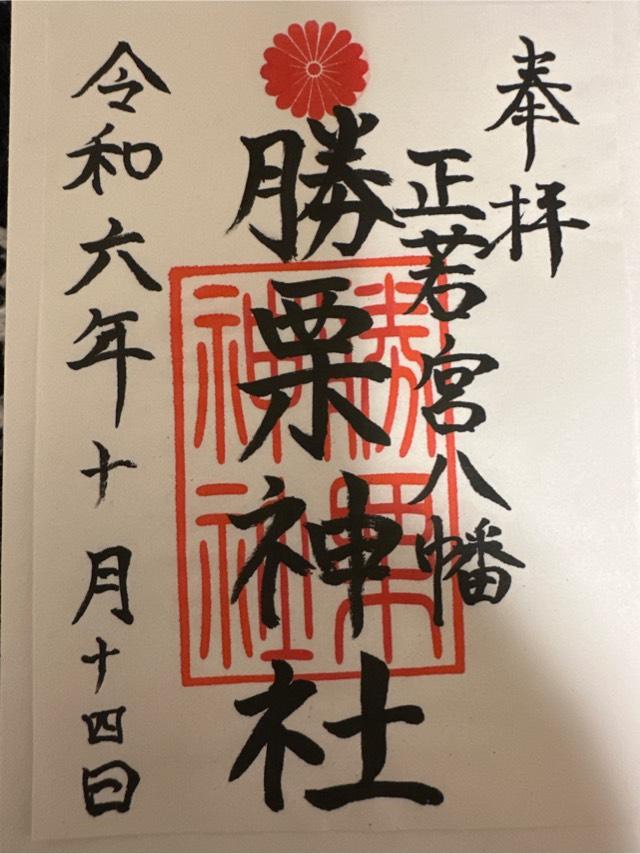 奉拝
正若宮八幡
勝栗神社
勝栗神社
令和六年十月十四日